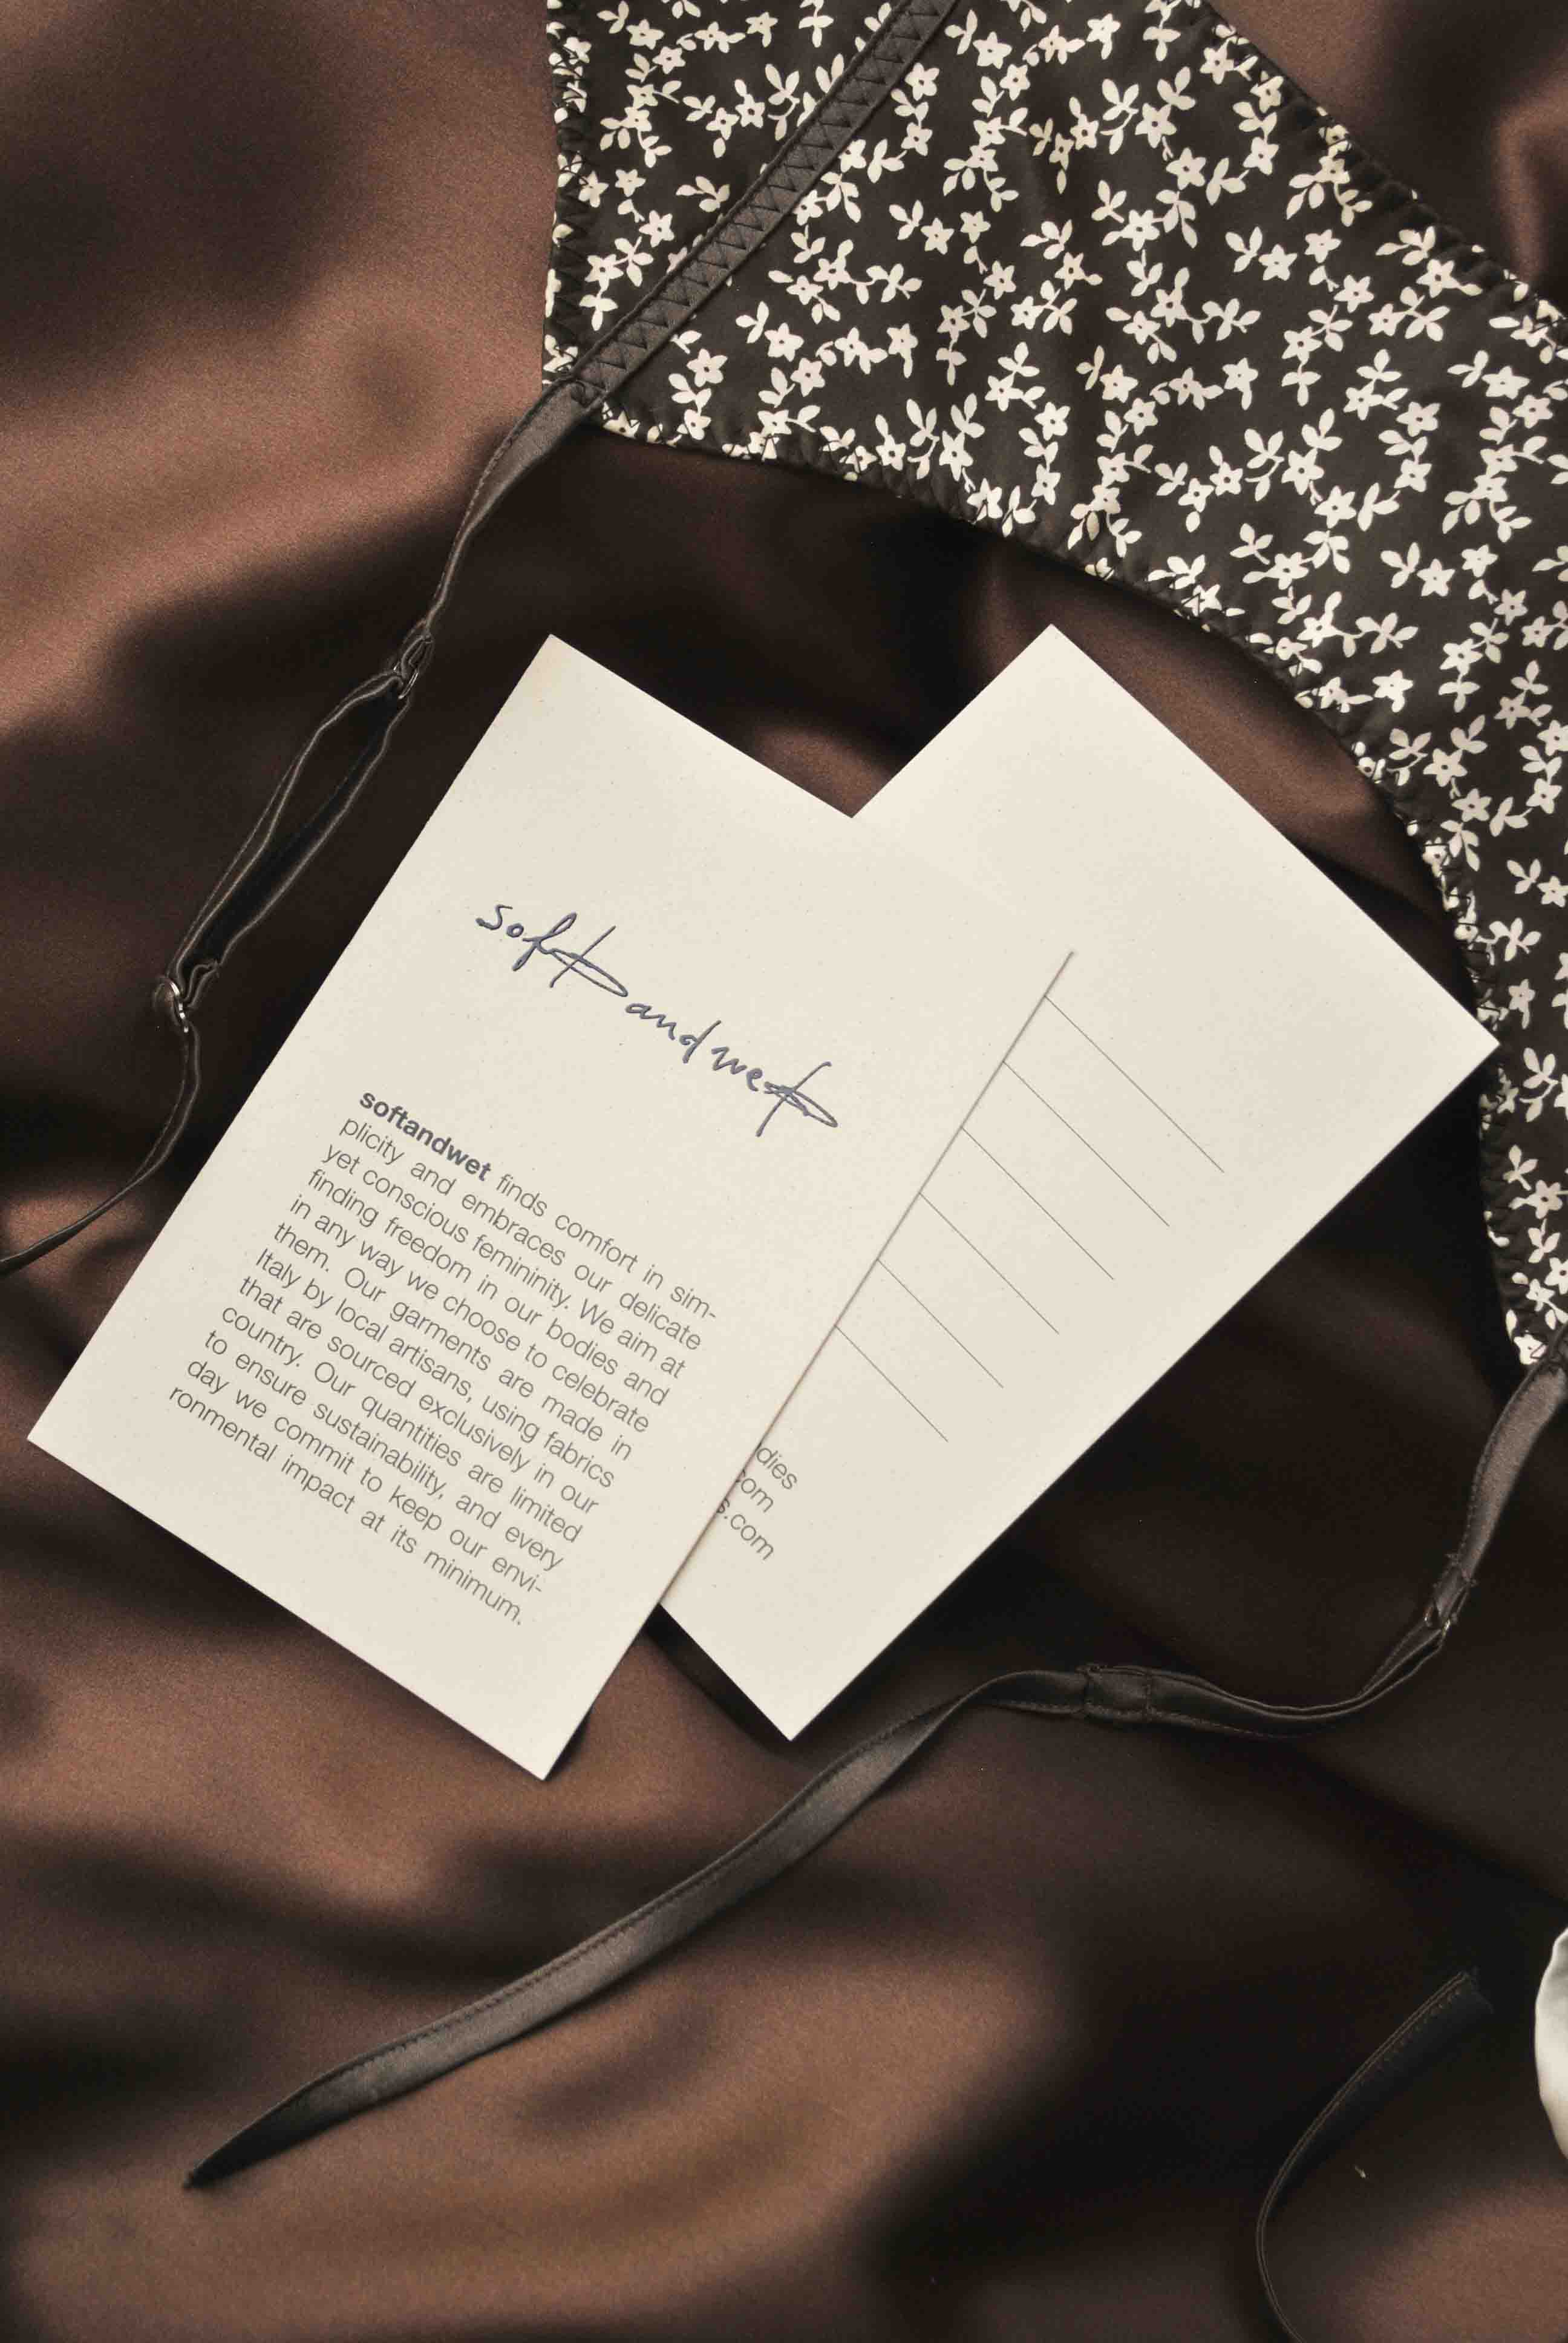 softandwet
softandwet finds comfort in sim-
plicity and embraces our delicate
yet conscious femininity. We aim at
finding freedom in our bodies and
in any way we choose to celebrate
them. Our garments are made in
Italy by local artisans, using fabrics
that are sourced exclusively in our
country. Our quantities are limited
to ensure sustainability, and every
day we commit to keep our envi-
ronmental impact at its minimum.
dies
com
s.com